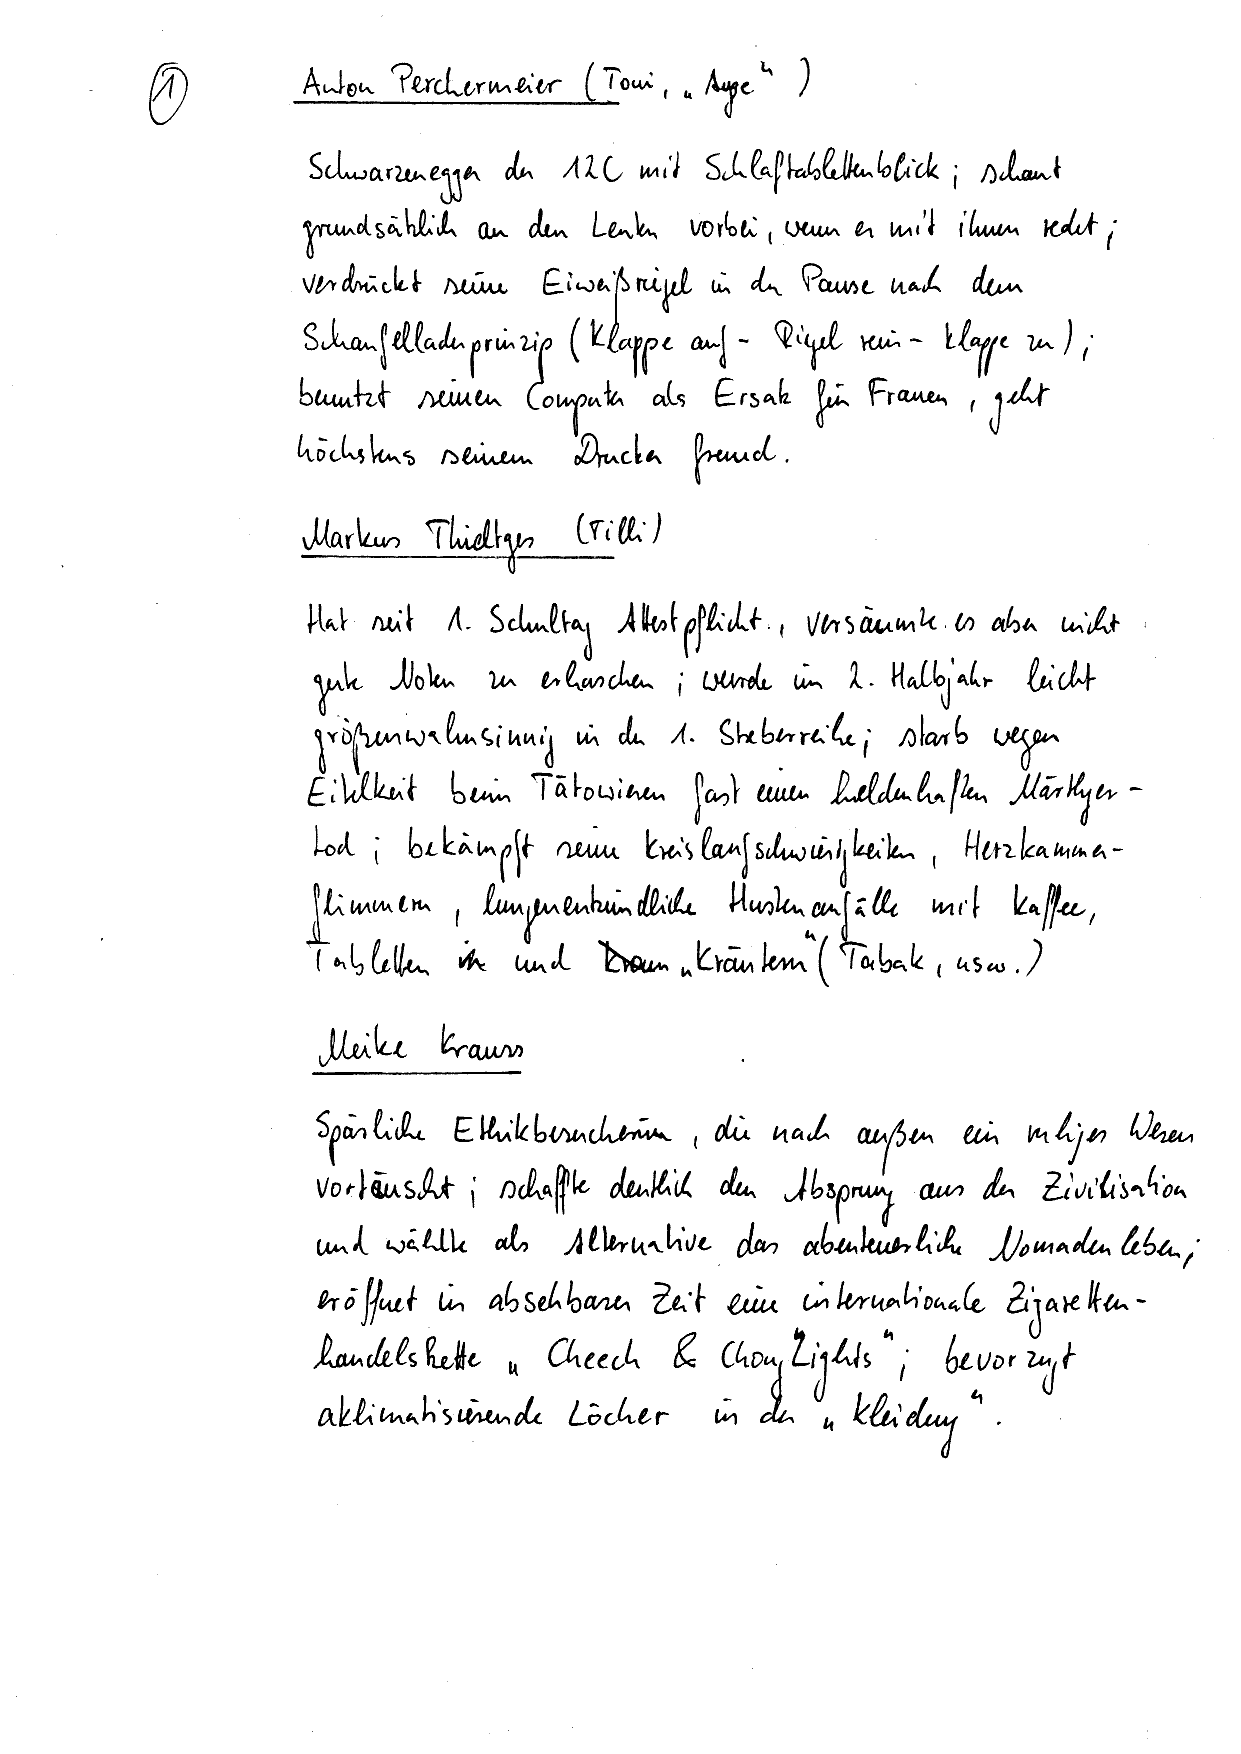 1
Anton Perchermeier (Toni, „Auge“)
Schwarzenegger der 12C mit Schlaftablettenblick; schaut
grundsätzlich an den Leuten vorbei, wenn er mit ihnen redet;
verdrückt seine Eiweißriegel in der Pause nach dem
Schaufelladerprinzip (Klappe auf - Riegel rein - Klappe zu);
benutzt seinen Computer als Ersatz für Frauen, geht
höchstens seinem Drucker fremd.
Markus Thieltges (Tilli)
Hat seit 1. Schultag Attestpflicht, versäumte es aber nicht
gute Noten zu erhaschen; wurde im 2. Halbjahr leicht
größenwahnsinnig in der 1. Streberreihe; starb wegen
Eitelkeit beim Tätowieren fast einen heldenhaften Märtyer-
tod; bekämpft seine Kreislaufschwierigkeiten, Herzkammer-
flimmern, lungenentzündliche Hustenanfälle mit Kaffee,
Tabletten und „Kräutern“ (Tabak, usw.)
Meike Krauss
Spärliche Ethikbesucherin, die nach außen ein ruhiges Wesen
vortäuscht; schaffte deutlich den Absprung aus der Zivilisation
und wählte als Alternative das abenteuerliche Nomadenleben;
eröffnet in absehbarer Zeit eine internationale Zigaretten-
handelskette „Cheech & Chong Lights“; bevorzugt
aklimatisierende Löcher in der „Kleidung“.